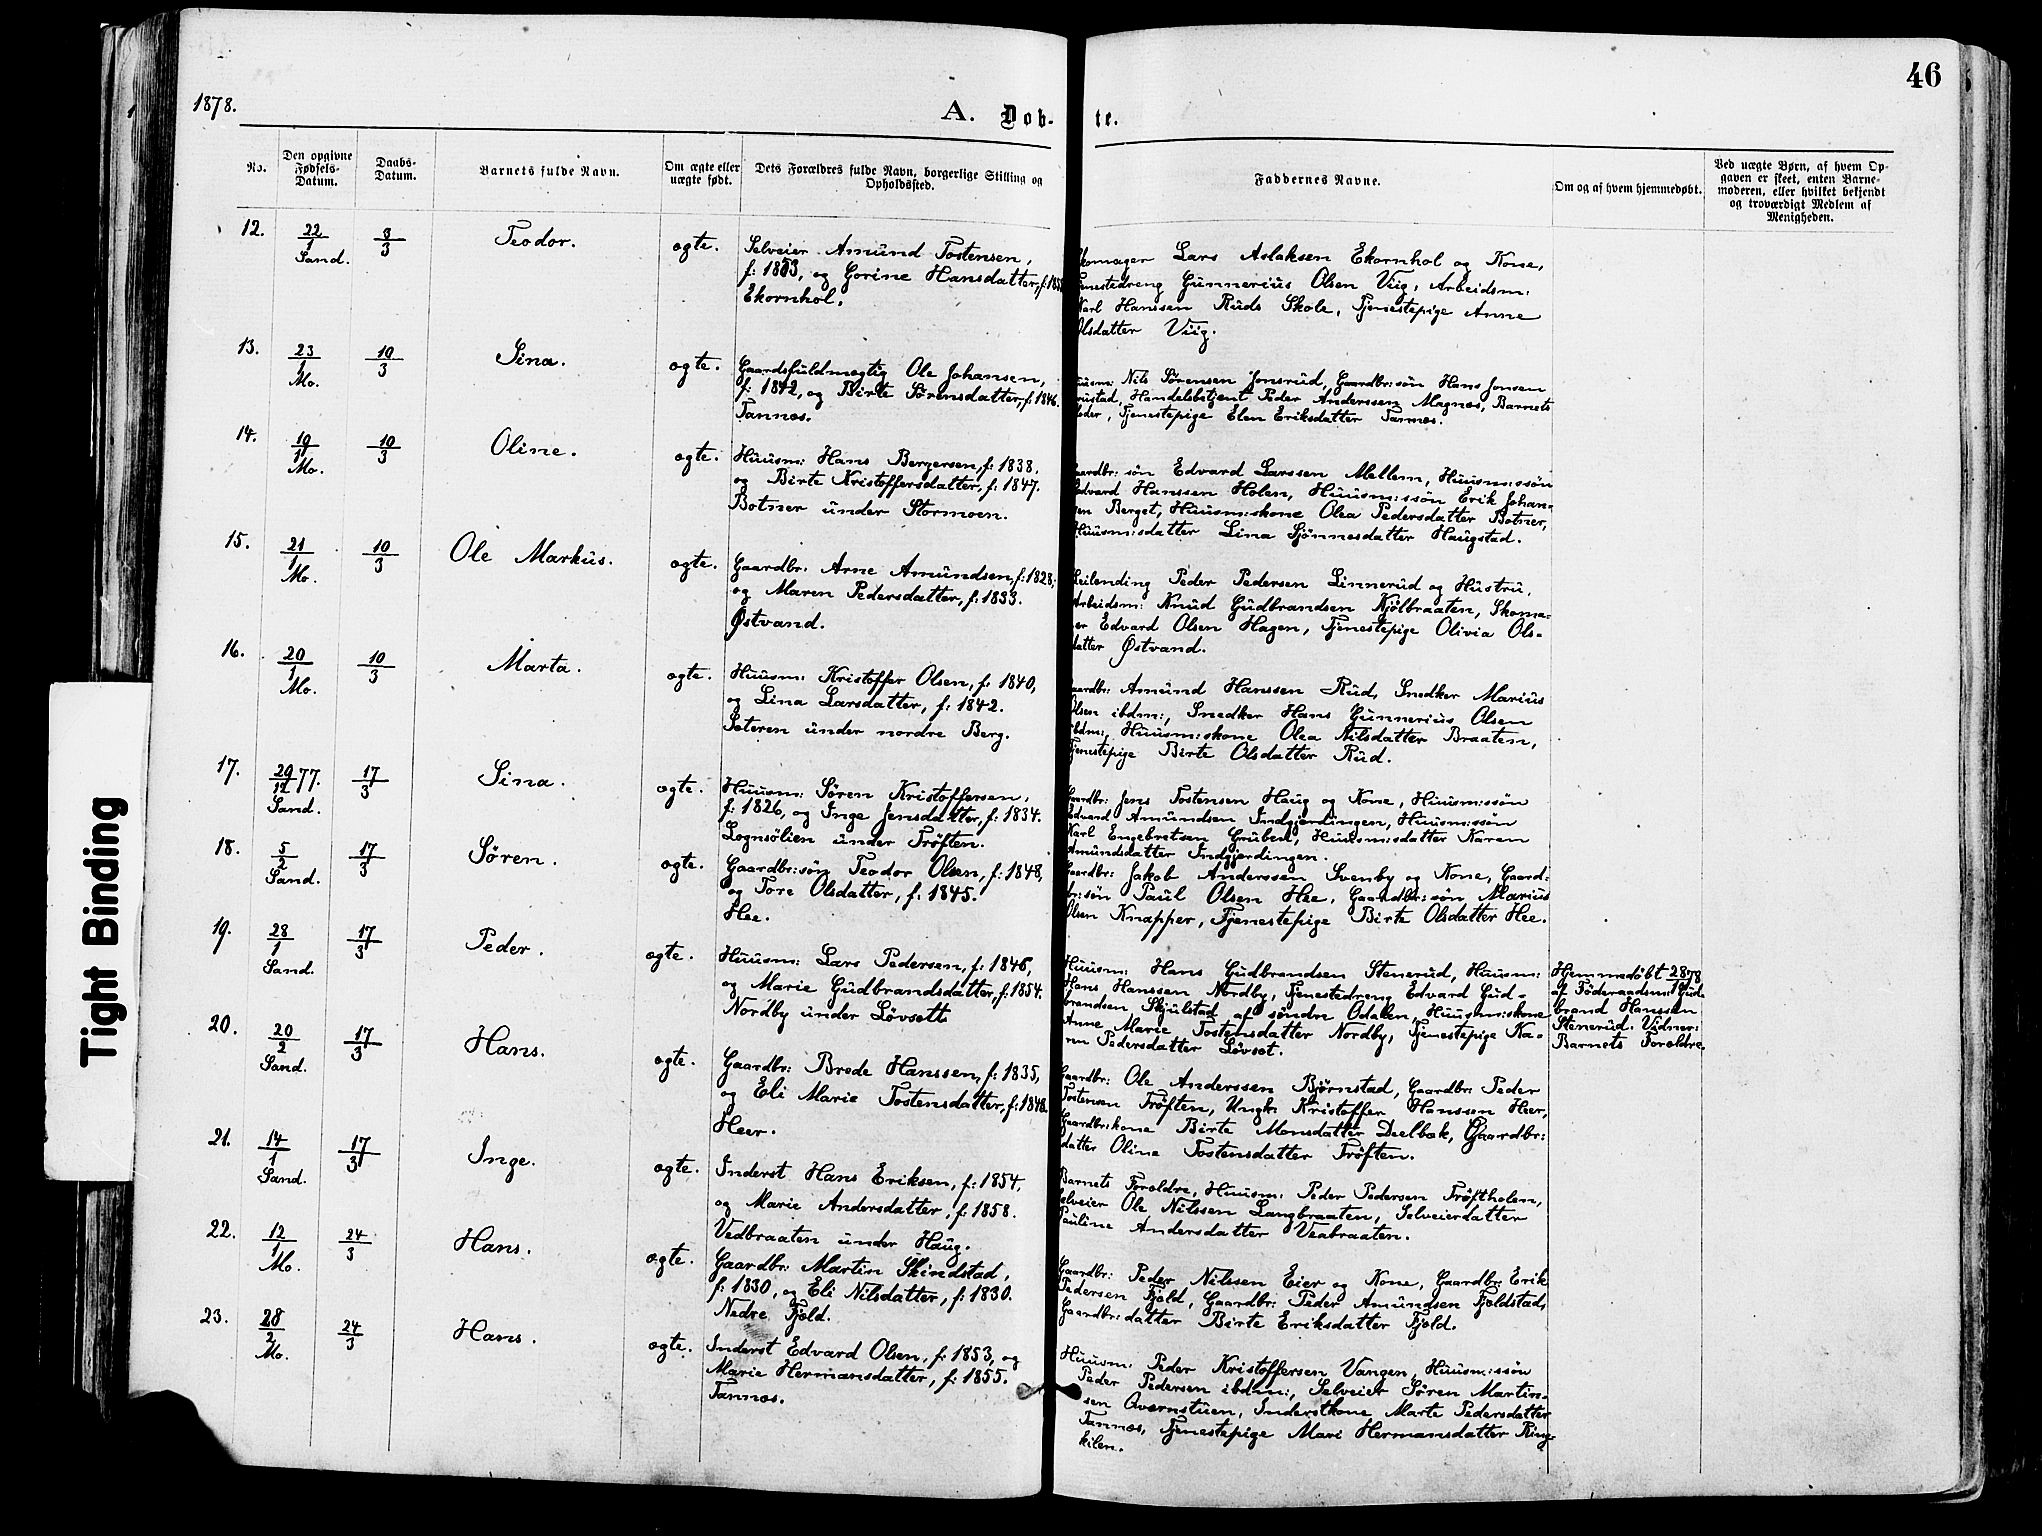 46
1878.
A. Døb-
te.
No.
Den opgivne
Fødsels-
Datum.
Daabs-
Datum.
Barnets fulde Navn.
Om ægte eller
uægte født.
Dets Forældres fulde Navn, borgerlige Stilling og
Opholdssted.
Faddernes Navne.
Om og af hvem hjemmedøbt.
Ved uægte Børn, af hvem Op-
gaven er skeet, enten Barne-
moderen, eller hvilket bekjendt
og troværdigt Medlem af
Menigheden.
12. 22/1 Sand. 3/3 Teodor. ægte.
Selveier Amund Tostensen,
f: 1853, og Gorine Hansdatter, f:
Ekornhol.
Skomager Lars Aslaksen Ekornhol og Kone,
Tjenestedreng Gunnerius Olsen Viig, Arbeidsm:
Karl Hanssen Ruds Skole, Tjenestepige Anne
Olsdatter Viig.
13. 23/1 Mo. 10/3 Sina. ægte.
Gaardsfuldmægtig Ole Johansen,
f: 1842, og Birte Sørensdatter, f: 1846.
Tannæs.
Huusm: Nils Sørensen Jonsrud, Gaardbr: søn Hans Jonsen
Handelsbetjent Peder Anderssen Magnæs, Barnets
Fader, Tjenestepige Elen Eriksdatter Tannæs.
14. 19/1 Mo. 10/3 Oline. ægte.
Huusm: Hans Bergersen, f: 1838,
og Birte Kristoffersdatter, f: 1847.
Botner under Stormoen.
Gaardbr: søn Edvard Larssen Mellem, Huusm:søn
Edvard Hanssen Holen, Huusm:søn Erik Johan-
sen Berget, Huusm:skone Olea Pedersdatter Botner,
Huusm:sdatter Lina Sjønnesdatter Haugstad.
15. 21/1 Mo. 10/3 Ole Markus. ægte.
Gaardbr. Arne Amundsen, f: 1828,
og Maren Pedersdatter, f: 1833.
Østvand.
Leilending Peder Pedersen Linnerud og Hustru,
Arbeidsm: Knud Gudbrandsen Kjølbraaten, Skoma-
ger Edvard Olsen Hagen, Tjenestepige Olivia Ols-
datter Østvand.
16. 20/1 Mo. 10/3 Marta. ægte.
Huusm: Kristoffer Olsen, f: 1840,
og Lina Larsdatter, f: 1842.
Seteren under nordre Berg.
Gaardbr: Amund Hanssen Rud, Snedker Marius
Olsen ibdm:, Snedker Hans Gunnerius Olsen
ibdm:, Huusm:skone Olea Nilsdatter Braaten,
Tjenestepige Birte Olsdatter Rud.
17. 29/12 77. Sand. 17/3 Sina. ægte.
Huusm: Søren Kristoffersen,
f: 1826, og Inge Jensdatter, f: 1834.
Lognsølien under Trøften.
Gaardbr: Jens Tostensen Haug og Kone, Huusm:søn
Edvard Amundsen Indgjerdingen, Huusm:søn
Karl Engebretsen Gruben, Huusm:sdatter Karen
Amundsdatter Indgjerdingen.
18. 5/2 Sand. 17/3 Søren. ægte.
Gaardbr:søn Teodor Olsen, f: 1848,
og Tore Olsdatter, f: 1845.
Hee.
Gaardbr: Jakob Anderssen Svenby og Kone, Gaard-
br:søn Paul Olsen Hee, Gaardbr: søn Marius
Olsen Knapper, Tjenestepige Birte Olsdatter Hee.
19. 28/1 Sand. 17/3 Peder. ægte.
Huusm: Lars Pedersen, f: 1846,
og Marie Gudbrandsdatter, f: 1854.
Nordby under Løvsett.
Huusm: Hans Gudbrandsen Stenerud, Huusm:
Hans Hanssen Nordby, Tjenestedreng Edvard Gud-
brandsen Skjulstad af søndre Odalen, Huusm:skone
Anne Marie Tostensdatter Nordby, Tjenestepige Ka-
ren Pedersdatter Løvset.
Hjemmedøbt
af Føderaadsm: Gud-
brand Hanssen
Stenerud. Vidner:
Barnets Forældre.
20. 20/2 Sand. 17/3 Hans. ægte.
Gaardbr: Brede Hanssen, f: 1835,
og Eli Marie Tostensdatter, f: 1848.
Heer.
Gaardbr: Ole Anderssen Bjørnstad, Gaardbr: Peder
Tostensen Trøften, Ungk: Kristoffer Hanssen Heer,
Gaardbr:kone Birte Monsdatter Deelbæk, Gaardbr:
datter Oline Tostensdatter Trøften.
21. 14/1 Sand. 17/3 Inge. ægte.
Inderst Hans Eriksen, f: 1854,
og Marie Andersdatter, f: 1858.
Vedbraaten under Haug.
Barnets Forældre, Huusm: Peder Pedersen Trøftholen,
Selveier Ole Nilssen Langbraaten, Selveierdatter
Pauline Andersdatter Veabraaten.
22. 12/1 Mo. 24/3 Hans. ægte.
Gaardbr: Martin Skindstad,
f: 1830, og Eli Nilsdatter, f: 1830.
Nedre Fjeld.
Gaardbr: Peder Nilssen Eier og Kone, Gaardbr: Erik
Pedersen Fjeld, Gaardbr: Peder Amundsen Fjeldstad,
Gaardbr:datter Birte Eriksdatter Fjeld.
23. 28/2 Mo. 24/3 Hans. ægte.
Inderst Edvard Olsen, f: 1853, og
Marie Hermansdatter, f: 1855.
Tannæs.
Huusm: Peder Kristoffersen Vangen, Huusm:søn
Peder Pedersen ibdm:, Selveier Søren Martin-
sen Qvernstuen, Inderstkone Marte Pedersdatter
Tannæs, Tjenestepige Mari Hermansdatter Ring-
kilen.
Tight Binding